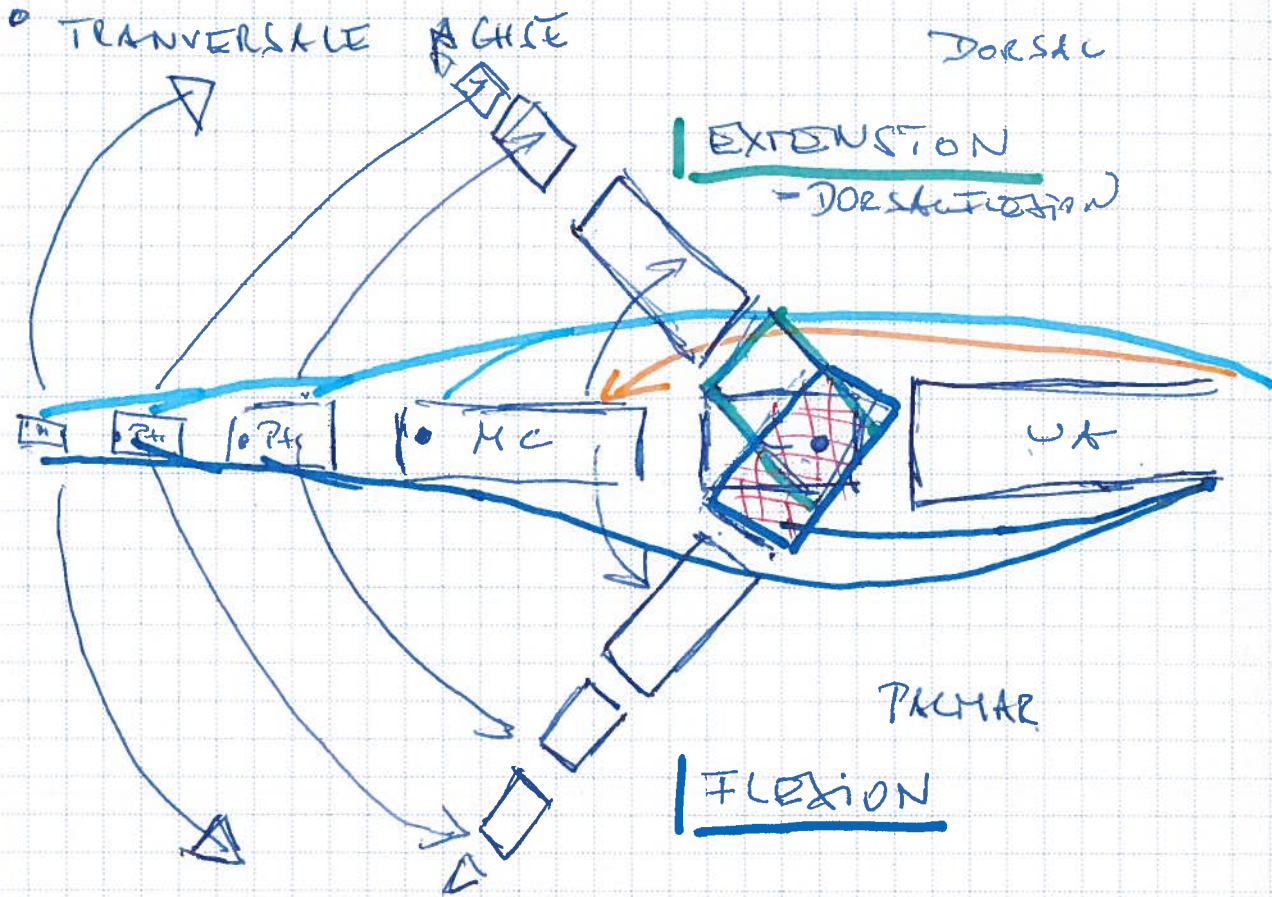 TRANVERSALE ACHSE
DORSAL
EXTENSION
- DORSALFLEXION
MC
UA
PALMAR
FLEXION